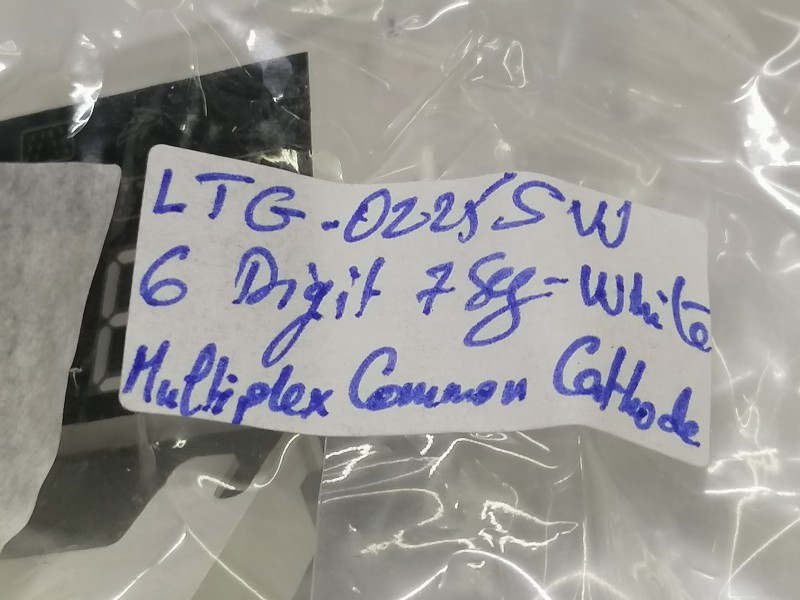 LTG-0225SW
6 Digit 7 Seg-White
Multiplex Common Cathode